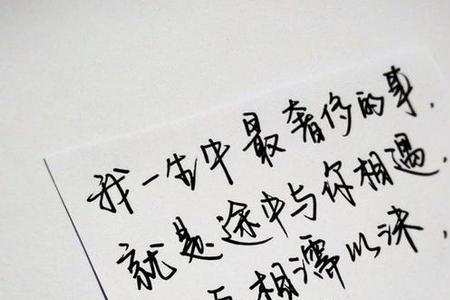 我一生中最奢侈的事.
就是途中与你相遇.
相濡以沫.